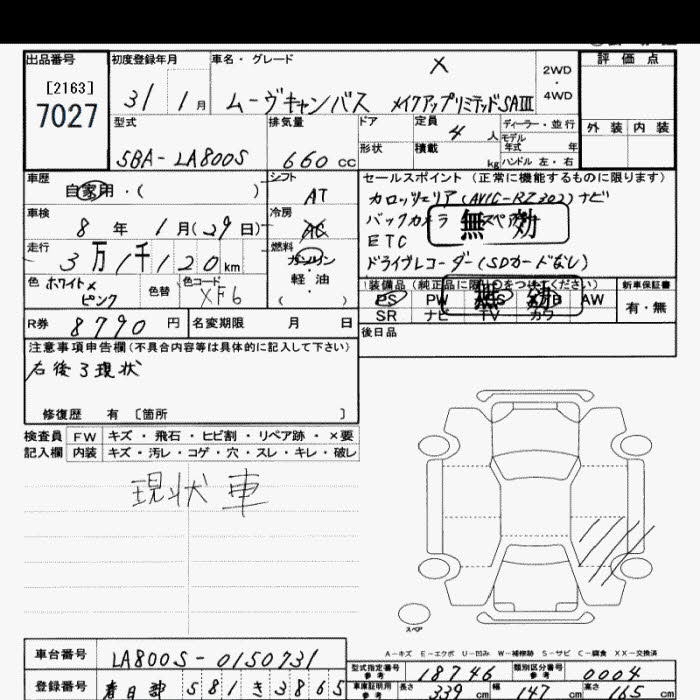 出品番号 初度登録年月 車名・グレード 2WD・4WD 評価点
[2163]
7027
31 1月 ムーヴキャンバス メイクアップリミテッドSAIII
型式 排気量 ドア 定員 4人 ディーラー・並行 外装 内装
モデル年式 年
SBA-LA800S 660cc 形状 積載 kg ハンドル 左・右
車歴 シフト セールスポイント (正常に機能するものに限ります)
自家用・( ) AT カロッツェリア(AVIC-RZ302)ナビ
車検 冷房 バックカメラ 無効
8年 1月(29日) AC ETC
走行 燃料 ドライブレコーダー(SDカードなし)
3万1千120km ガソリン・軽油
色 ホワイト×ピンク 色替 色コード XF6
装備品(純正品に限り○をつけてください) 新車保証書
PS PW AW 有・無
SR ナビ TV カワ
R券 8790円 名変期限 月 日
後日品
注意事項申告欄(不具合内容等は具体的に記入して下さい)
右後ろ現状
修復歴 有 〔箇所 〕
検査員記入欄 FW キズ・飛石・ヒビ割・リペア跡・×要
内装 キズ・汚レ・コゲ・穴・スレ・キレ・破レ
現状車
スペア
A-キズ E-エクボ U-凹み W-補修跡 S-サビ C-腐食 XX-交換済
車台番号 LA800S-0150731
型式指定番号 参考 18746 類別区分番号 参考 0004
登録番号 春日部 581 き 3865
車庫証明用 参考 長さ 339cm 幅 147cm 高さ 165cm